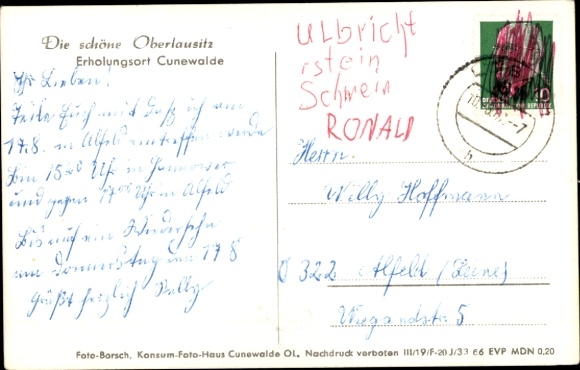 Die schöne Oberlausitz
Erholungsort Cunewalde
Ihr Lieben!
Teile Euch mit daß ich am
17.8. in Alfeld eintreffen werde
Bin 15 Uhr in Hannover
und gegen 17 Uhr in Alfeld
Bis auf ein Wiedersehn
am Donnerstag den 17.8
Grüßt herzlich
ULbricht
istein
Schwein
RONALD
10
Herrn
Willy Hoffmann
322 Alfeld (Leine)
Wiegandstr. 5
Foto-Borsch, Konsum-Foto-Haus Cunewalde OL, Nachdruck verboten III/19/F-20 J/33 66 EVP MDN 0,20